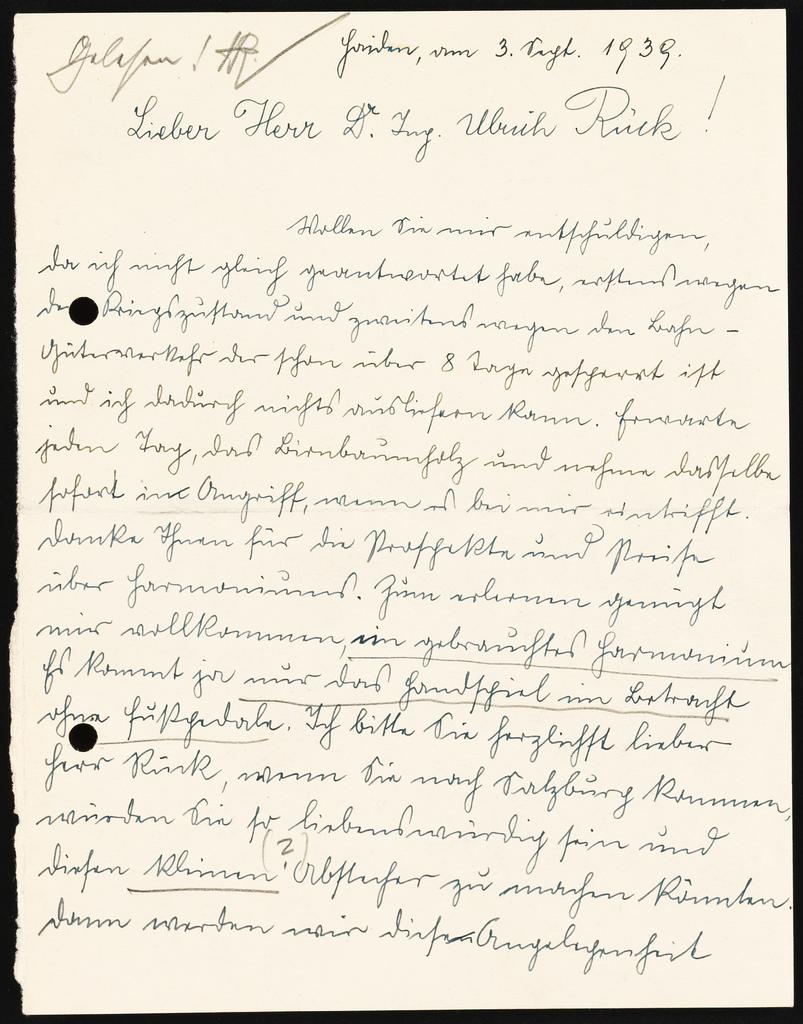 Gelesen! HR.
Haiden, am 3. Sept. 1939.
Lieber Herr Dr. Ing. Ulrich Rück!
Wollen Sie mir entschuldigen,
da ich nicht gleich geantwortet habe, erstens wegen
den Kriegszustand und zweitens wegen den Bahn-
Güterverkehr der schon über 8 Tage gesperrt ist
und ich dadurch nichts ausliefern kann. Erwarte
jeden Tag, das Birnbaumholz und nehme dasselbe
sofort in Angriff, wenn es bei mir eintrifft.
Danke Ihnen für die Prospekte und Preise
über Harmoniums. Zum erlernen genügt
mir vollkommen, ein gebrauchtes Harmonium
Es kommt ja nur das Handspiel in Betracht
ohne Fußpedale. Ich bitte Sie herzlichst lieber
Herr Rück, wenn Sie nach Salzburg kommen,
würden Sie so liebenswürdig sein und
diesen kleinen (?) Abstecher zu machen könnten.
Dann werden wir diese Angelegenheit